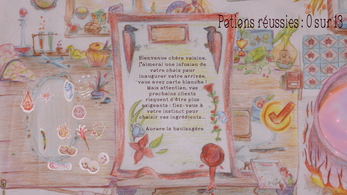 Potions réussies : 0 sur 13
Bienvenue chère voisine,
J'aimerai une infusion de
votre choix pour
inaugurer votre arrivée,
vous avez carte blanche !
Mais attention, vos
prochains clients
risquent d'être plus
exigeants : fiez-vous à
votre instinct pour
choisir vos ingrédients...
Aurore la boulangère